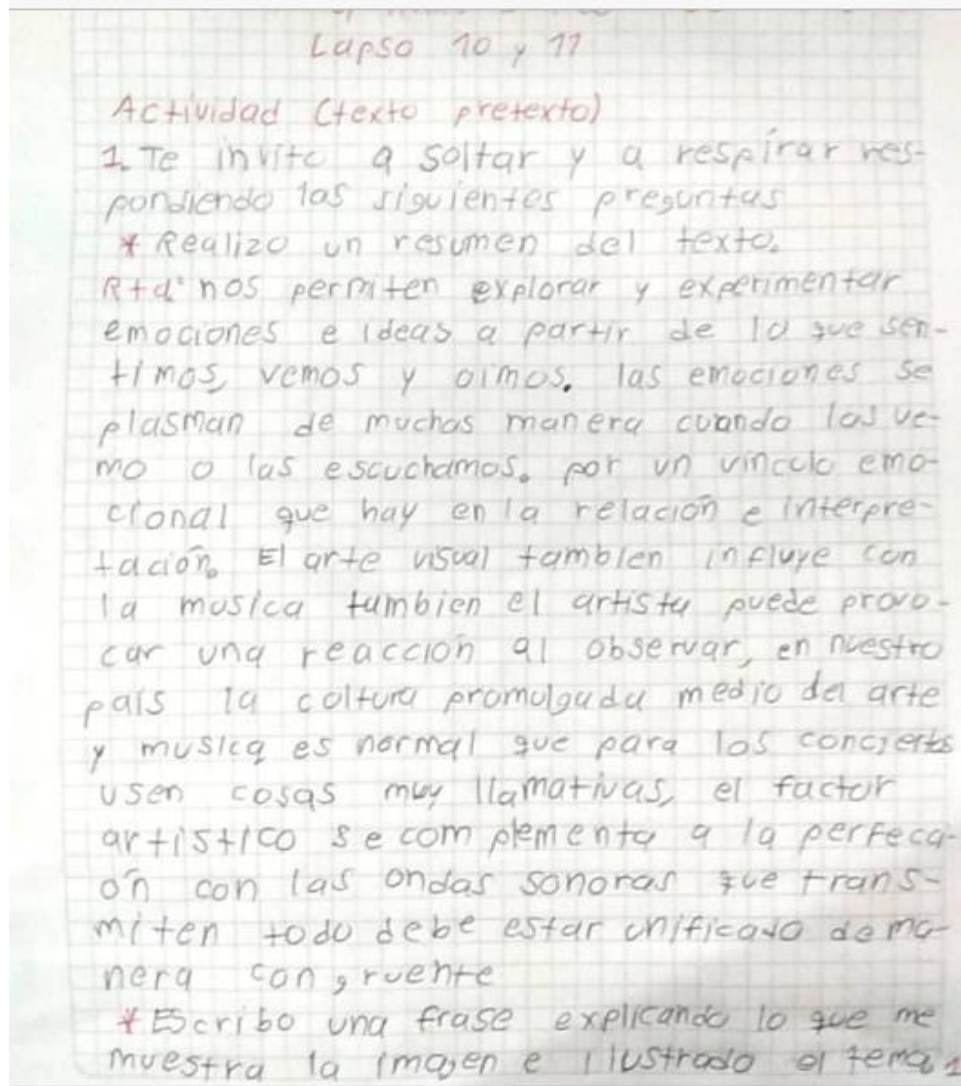 Lapso 10 y 11
Actividad (texto pretexto)
1. Te invito a soltar y a respirar res-
pondiendo las siguientes preguntas
* Realizo un resumen del texto.
Rta: nos permiten explorar y experimentar
emociones e ideas a partir de lo que sen-
timos, vemos y oimos. las emociones se
plasman de muchas manera cuando las ve-
mo o las escuchamos. por un vinculo emo-
cional que hay en la relación e interpre-
tación. El arte visual tambien influye con
la musica tambien el artista puede provo-
car una reacción al observar, en nuestro
país la coltura promulgada medio del arte
y musica es normal que para los conciertos
usen cosas muy llamativas, el factor
artistico se complementa a la perfecci-
ón con las ondas sonoras que trans-
miten todo debe estar unificado de ma-
nera congruente
* Escribo una frase explicando lo que me
muestra la imagen e ilustrado el tema 1